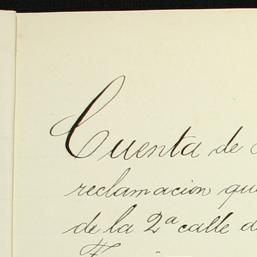 Cuenta de
reclamacion que
de la 2ª calle d